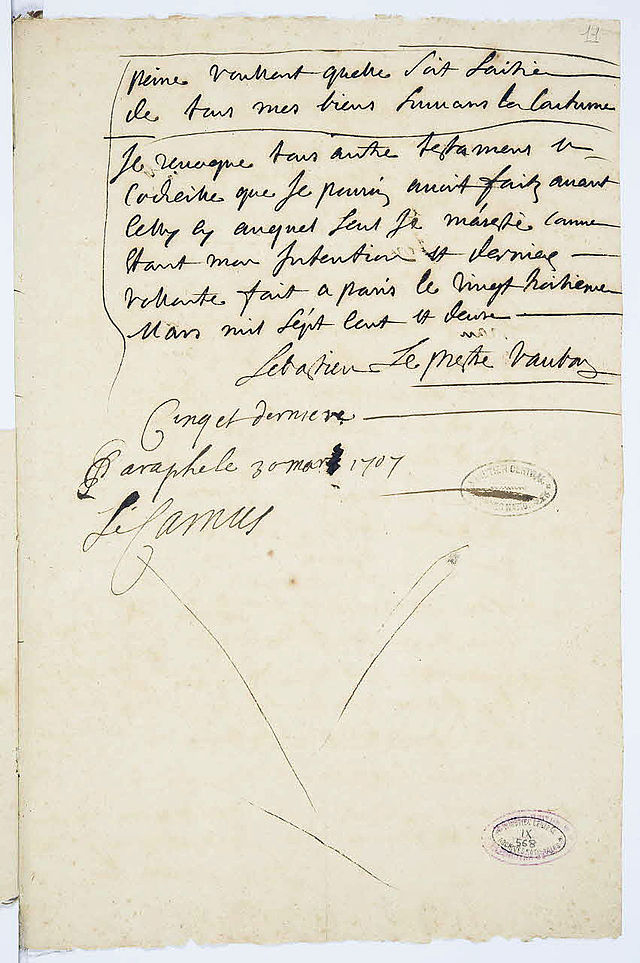 11
peine voullant quelle soit saisie
de tous mes biens suivans la coutume
Je revoque tous autre testamens
Codicille que Je pourois avoir faitz avant
Celluy cy auquel seul Je m'areste comme
Etant mon Intention et derniere
vollonte fait a paris le vingt troisieme
Mars mil sept cent et deux
Sebastien Le prestre Vauban
Cinq et derniere
Paraphé le 30 mars 1707
Le Camus
IX
568